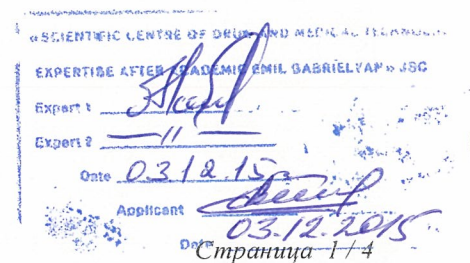 « SCIENTIFIC CENTRE OF DRUG AND MEDICAL TECHNOLOGY
EXPERTISE AFTER ACADEMIC EMIL GABRIELYAN » JSC
Expert 1
Expert 2 — 11 —
Date 03 12.15
Applicant
03.12.2015
Date
Страница 1 / 4